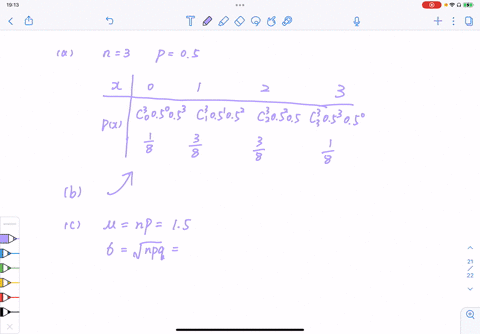 19:13
(a) n=3 p=0.5
x 0 1 2 3
P(x) C₀³0.5⁰0.5³ C₁³0.5¹0.5² C₂³0.5²0.5 C₃³0.5³0.5⁰
1/8 3/8 3/8 1/8
(b)
(c) μ = np = 1.5
σ = √npq =
21
/
22